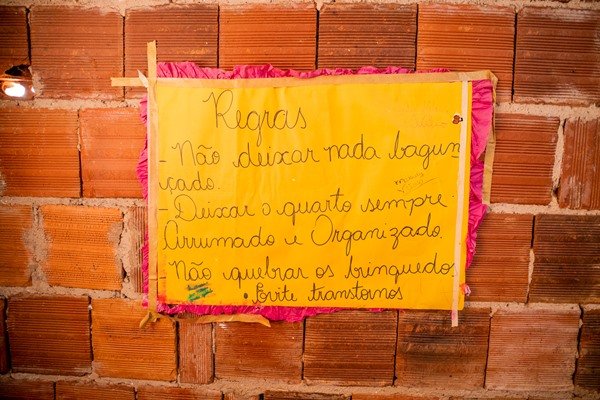 Regras
- Não deixar nada bagun
çado.
- Deixar o quarto sempre
Arrumado e Organizado.
- Não quebrar os brinquedos
• Evite transtornos